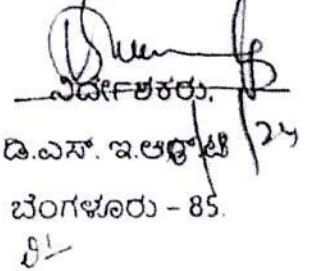 ನಿರ್ದೇಶಕರು,
ಡಿ.ಎಸ್. ಇ.ಆರ್.ಟಿ
ಬೆಂಗಳೂರು – 85.